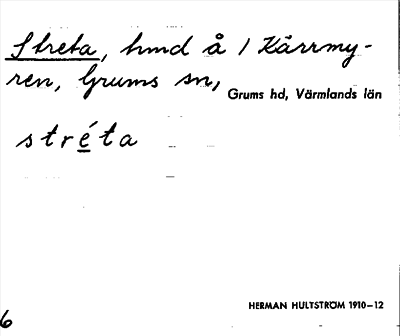 Streta, hmd å / Kärrmy-
ren, Grums sn,
Grums hd, Värmlands län
stréta
HERMAN HULTSTRÖM 1910–12
6